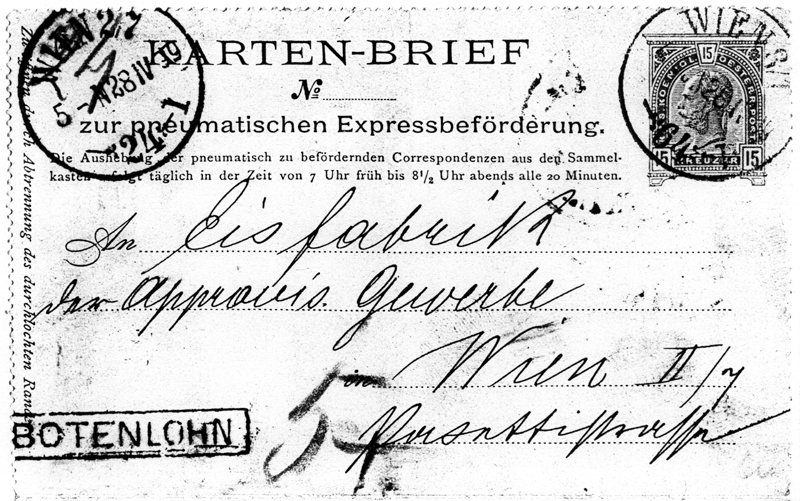 WIEN 2/7
KARTEN-BRIEF
No
zur pneumatischen Expressbeförderung.
Die Aushebung der pneumatisch zu befördernden Correspondenzen aus den Sammel-
kasten erfolgt täglich in der Zeit von 7 Uhr früh bis 8 1/2 Uhr abends alle 20 Minuten.
WIEN
15
15 KREUZER 15
An Eisfabrik
der Approvis. Gewerbe
in Wien II/7
Pasettistrasse
BOTENLOHN
5
Zu öffnen durch Abtrennung des durchlochten Randes